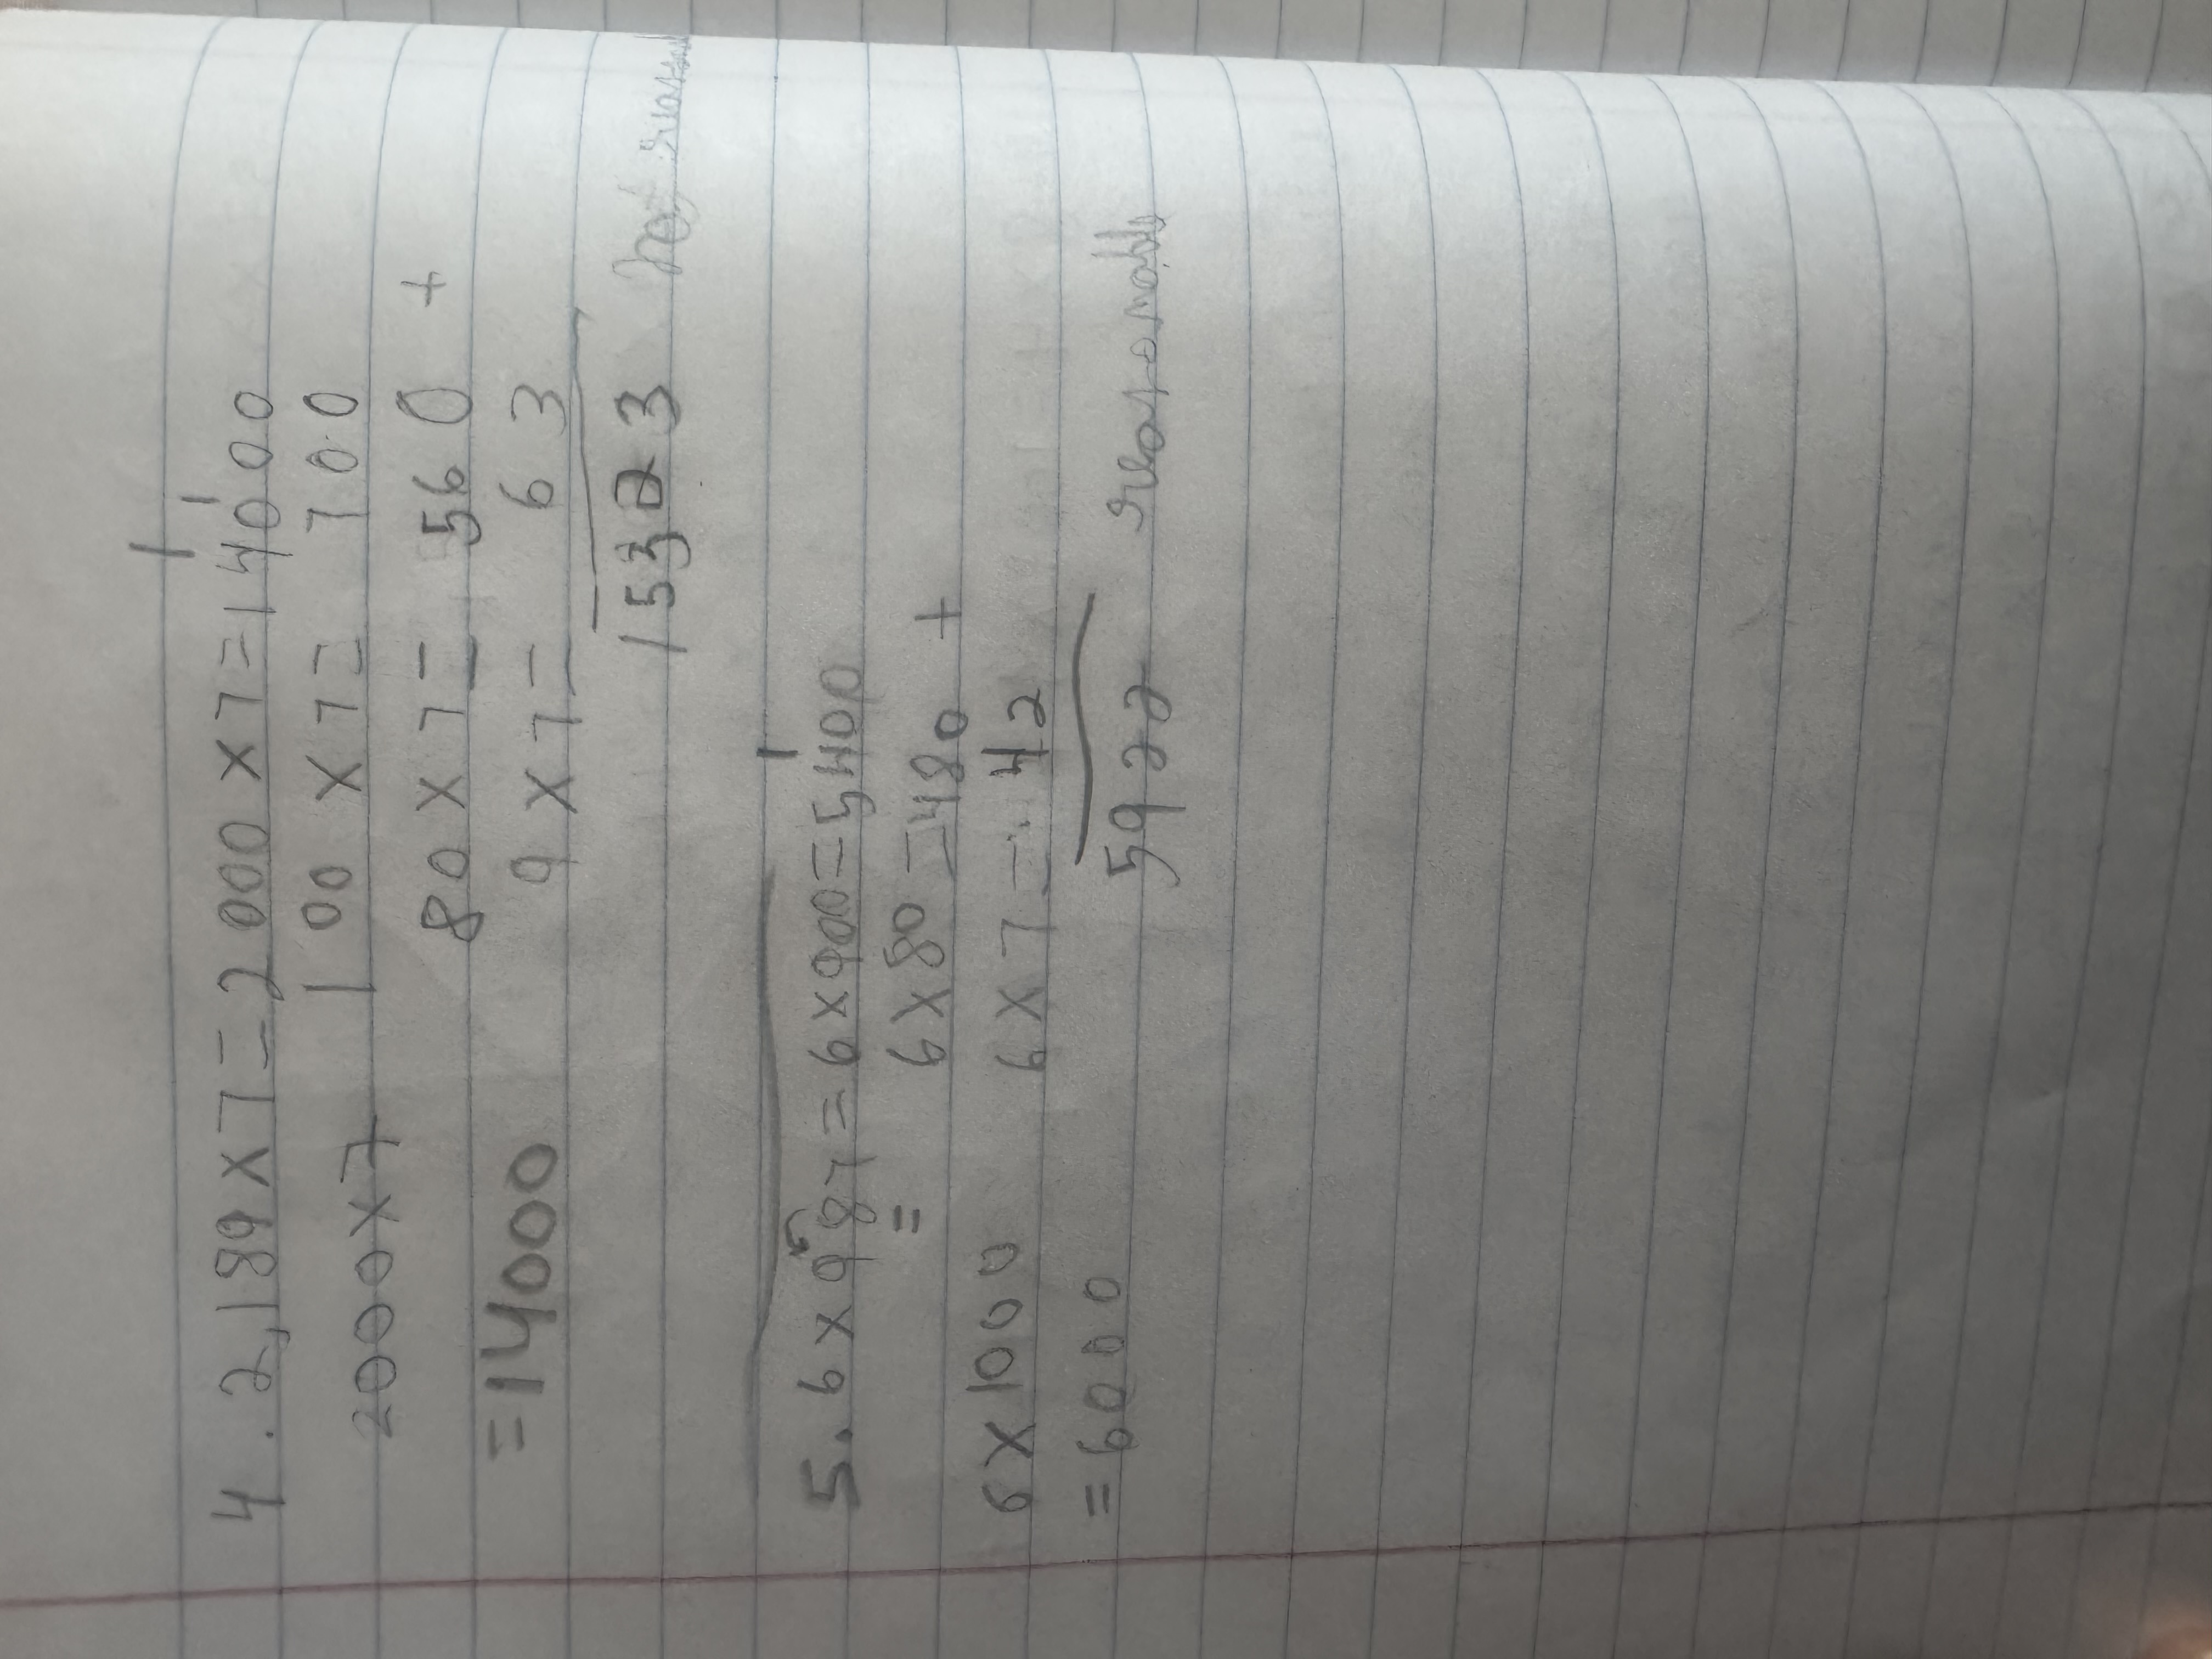 4. 2,189 x 7 = 2000 x 7 = 14000
100 x 7 = 700
2000 x 7
80 x 7 = 560 +
= 14000
9 x 7 = 63
15323 not
5. 6 x 987 = 6 x 900 = 5,400
= 6 x 80 = 480 +
6 x 1000 6 x 7 = 42
= 6000 5922 reasonable